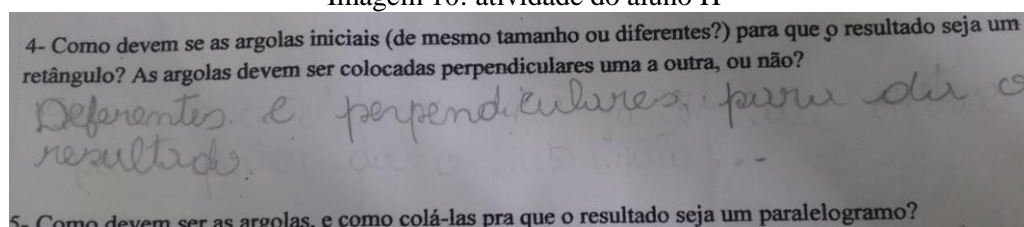 Imagem 10: atividade do aluno H
4- Como devem se as argolas iniciais (de mesmo tamanho ou diferentes?) para que o resultado seja um
retângulo? As argolas devem ser colocadas perpendiculares uma a outra, ou não?
Deferentes e perpendiculares para dar o
resultado.
5- Como devem ser as argolas, e como colá-las pra que o resultado seja um paralelogramo?